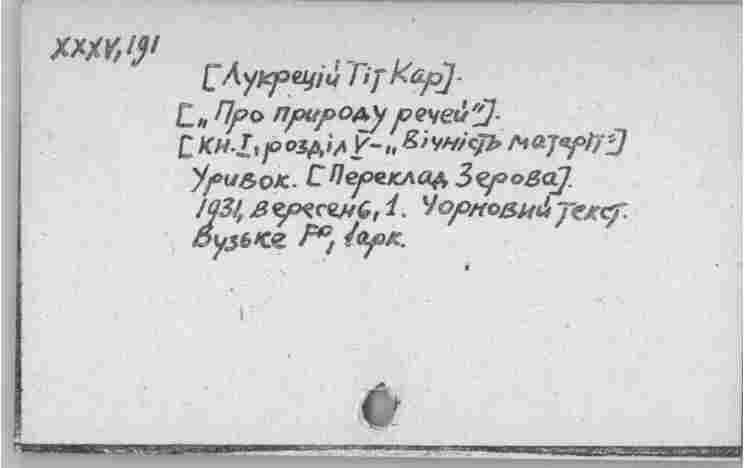 XXXV,191
[Лукрецій Тіт Кар].
[„Про природу речей"].
[кн. I, розділ V – „Вічність матерії"]
Уривок. [Переклад Зерова].
1931, вересень, 1. Чорновий текст.
Вузьке Fº, 1арк.